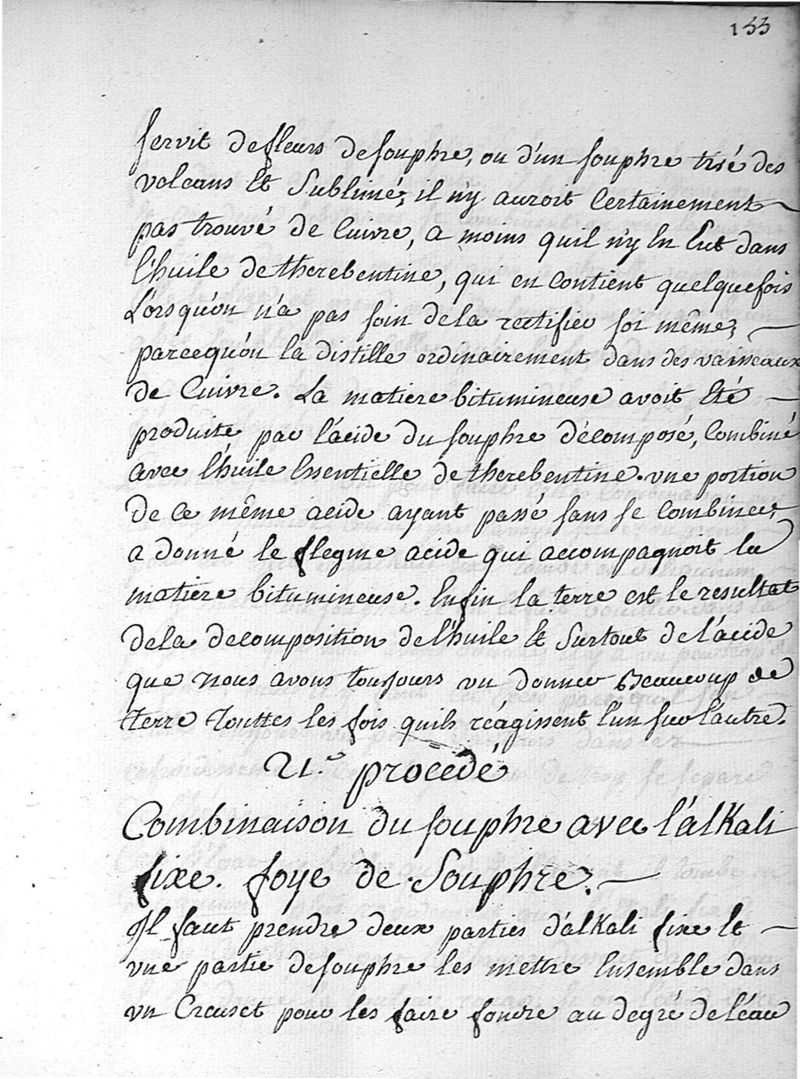 155
servit de fleurs de souphre, ou d'un souphre tiré des
volcans et sublimé, il n'y auroit certainement
pas trouvé de cuivre, a moins quil n'y en eut dans
l'huile de therebentine, qui en contient quelquefois
Lorsqu'on n'a pas soin de la rectifier soi même,
parcequ'on la distille ordinairement dans des vaisseaux
de cuivre. La matiere bitumineuse avoit eté
produite par l'acide du souphre décomposé, combiné
avec l'huile essentielle de therebentine. une portion
de ce même acide ayant passé sans se combiner,
a donné le flegme acide qui accompagnoit la
matiere bitumineuse. Enfin la terre est le resultat
de la decomposition de l'huile et surtout de l'acide
que nous avons toujours vu donner beaucoup de
terre touttes les fois quils réagissent l'un sur l'autre.
21.e procedé
Combinaison du souphre avec l'alkali
fixe. foye de Souphre.
Il faut prendre deux parties d'alkali fixe et
une partie de souphre les mettre ensemble dans
un Creuset pour les faire fondre au degré de l'eau